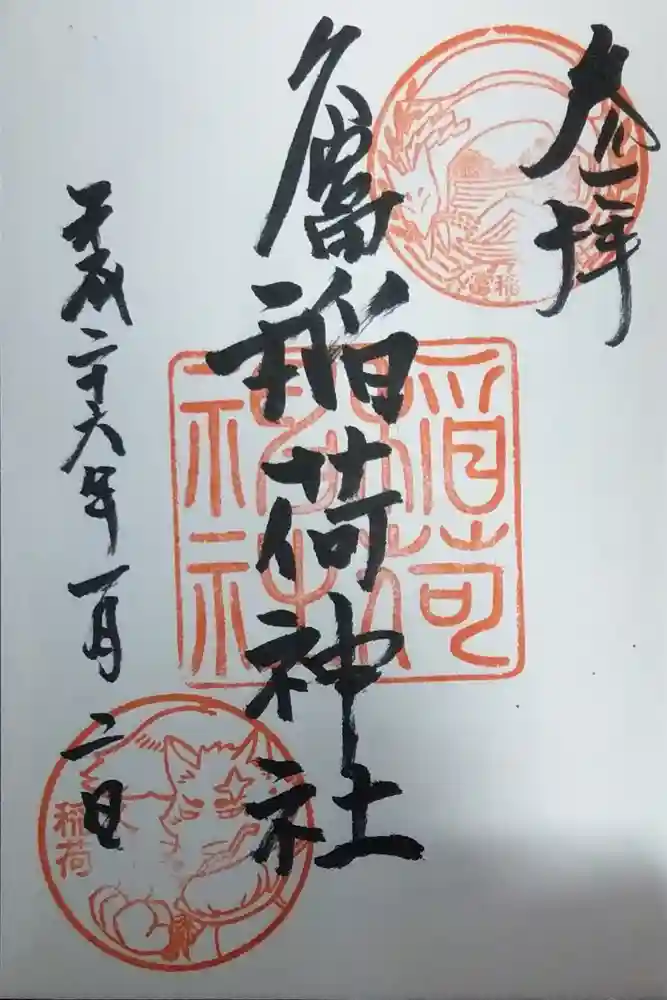 参拝
久富稲荷神社
稲荷
神社
平成二十六年一月二日
稲荷